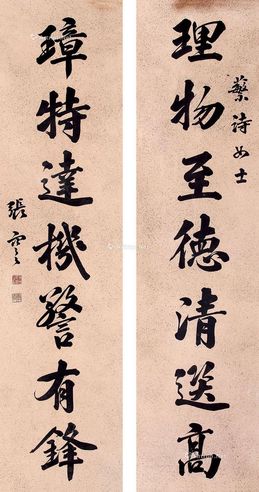 蘩詩女士
理物至德清選高
璋特達機警有鋒
張